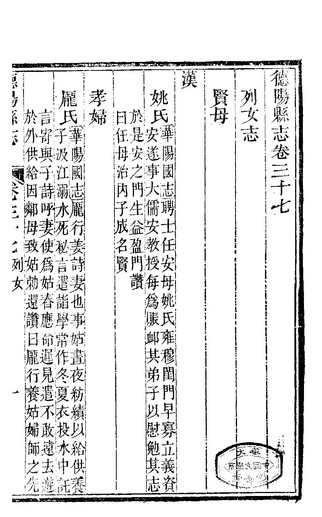 德陽縣志卷三十七
列女志
賢母
漢
姚氏華陽國志聘士任安母姚氏雍穆閨門早寡立義資
安遂事大儒安教授每為賑卹其弟子以慰勉其志
於是安之門生益盈門讚
曰任母治內子成名賢
孝婦
龐氏華陽國志龐行姜詩妻也事姑晝夜紡績以給供養
子汲江溺水死秘言遣詣學常作冬夏衣投水中託
言寄與子詩呼妻使為姑舂應命遲見遣不敢遠去遂
於外供給因鄰母致姑刺還讚曰龐行養姑婦師之先
德陽縣志
卷三十七列女
一